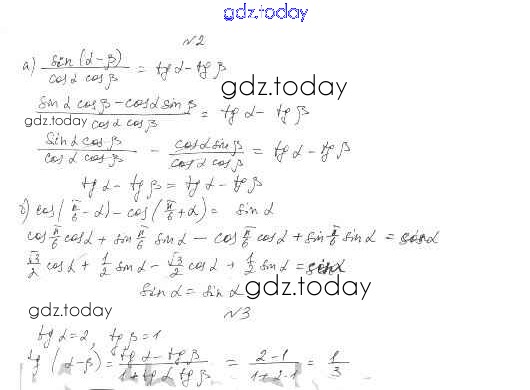 gdz.today
№2
а) sin(α-β)/cosα cosβ = tgα - tgβ
gdz.today
sinα cosβ - cosα sinβ/cosα cosβ = tgα - tgβ
gdz.today
sinα cosβ/cosα cosβ - cosα sinβ/cosα cosβ = tgα - tgβ
tgα - tgβ = tgα - tgβ
б) cos(π/6 - α) - cos(π/6 + α) = sinα
cos π/6 cosα + sin π/6 sinα - cos π/6 cosα + sin π/6 sinα = sinα
√3/2 cosα + 1/2 sinα - √3/2 cosα + 1/2 sinα = sinα
sinα = sinα
gdz.today
№3
gdz.today
tgα = 2, tgβ = 1
tg(α-β) = tgα - tgβ/1 + tgα tgβ = 2-1/1+2·1 = 1/3